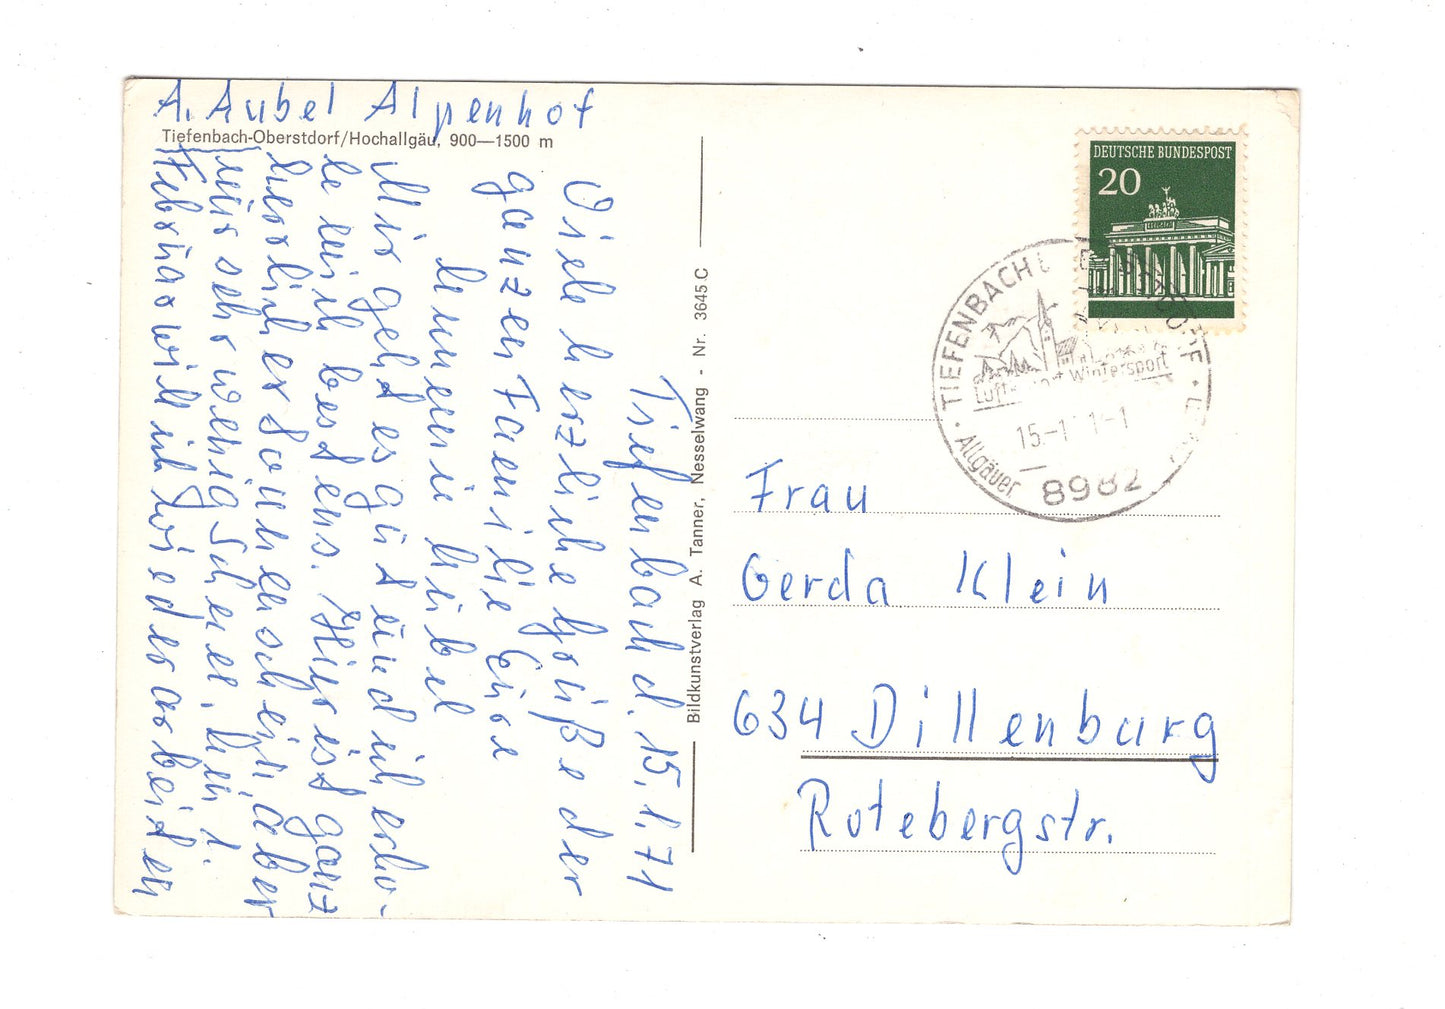 A. Aubel Alpenhof
Tiefenbach-Oberstdorf/Hochallgäu, 900—1500 m
Tiefenbach d. 15.1.71
Viele herzliche Grüße der
ganzen Familie Eure
Mir geht es gut und ich erho-
le mich bestens. Hier ist ganz
herrlicher Sonnenschein aber
nur sehr wenig Schnee.
Februar will ich wieder arbeiten
Bildkunstverlag A. Tanner, Nesselwang - Nr. 3645 C
DEUTSCHE BUNDESPOST
20
TIEFENBACH
Wintersport
15.-1
Allgäuer
8982
Frau
Gerda Klein
634 Dillenburg
Rotebergstr.